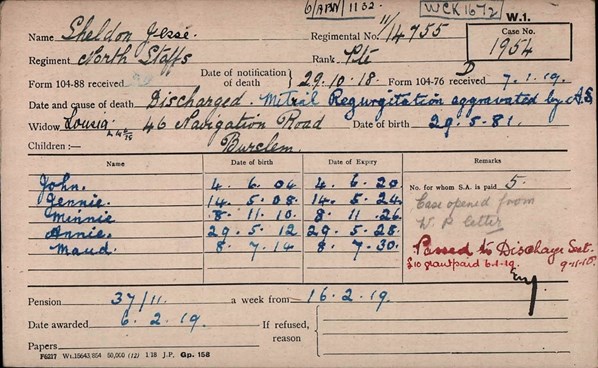 6/APW/1102 WCK 1672 W.1.
Name Sheldon Jesse Regimental No. 11/14755 Case No. 1954
Regiment North Staffs Rank Pte
Form 104-88 received Date of notification of death 29.10.18 Form 104-76 received D 7.1.19.
Date and cause of death Discharged. Mitral Regurgitation aggravated by A.S.
Widow Louisa 46 Navigation Road Date of birth 29.5.81.
Children:— Burslem.
Name Date of birth Date of Expiry Remarks
John. 4.6.04 4.6.20. No. for whom S.A. is paid 5.
Jennie. 14.5.08 14.5.24. Case opened from
Minnie 8.11.10 8.11.26. W.P. letter
Annie. 29.5.12 29.5.28. Passed to Discharge Sect.
Maud. 8.7.14 8.7.30. £10 grant paid 6.1.19. 9.11.18.
Pension 37/11 a week from 16.2.19.
Date awarded 6.2.19. If refused,
reason
Papers
F6217 Wt.16643/864 60,000 (12) 1/18 J.P. Gp. 158